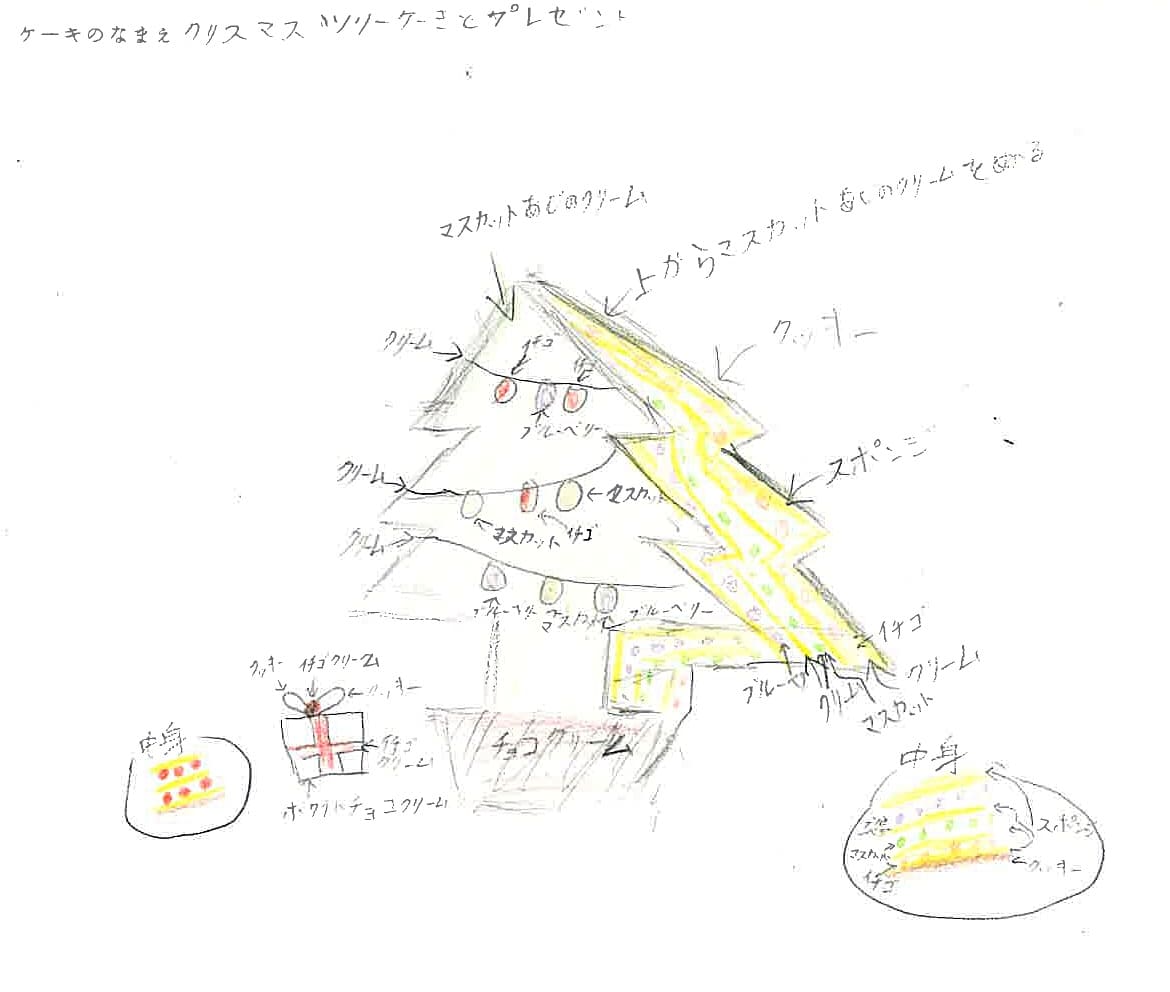 ケーキのなまえ クリスマスツリーケーキとプレゼント
マスカットあじのクリーム
上からマスカットあじのクリームをぬる
クリーム
イチゴ
イチゴ
クッキー
ブルーベリー
スポンジ
クリーム
マスカット
マスカット
イチゴ
クリーム
ブルーベリー
マスカット
ブルーベリー
イチゴ
クリーム
ブルーベリー
クリーム
マスカット
クッキー
イチゴクリーム
クッキー
イチゴ
クリーム
ホワイトチョコクリーム
チョコクリーム
中身
中身
スポンジ
ブルーベリー
マスカット
イチゴ
クッキー